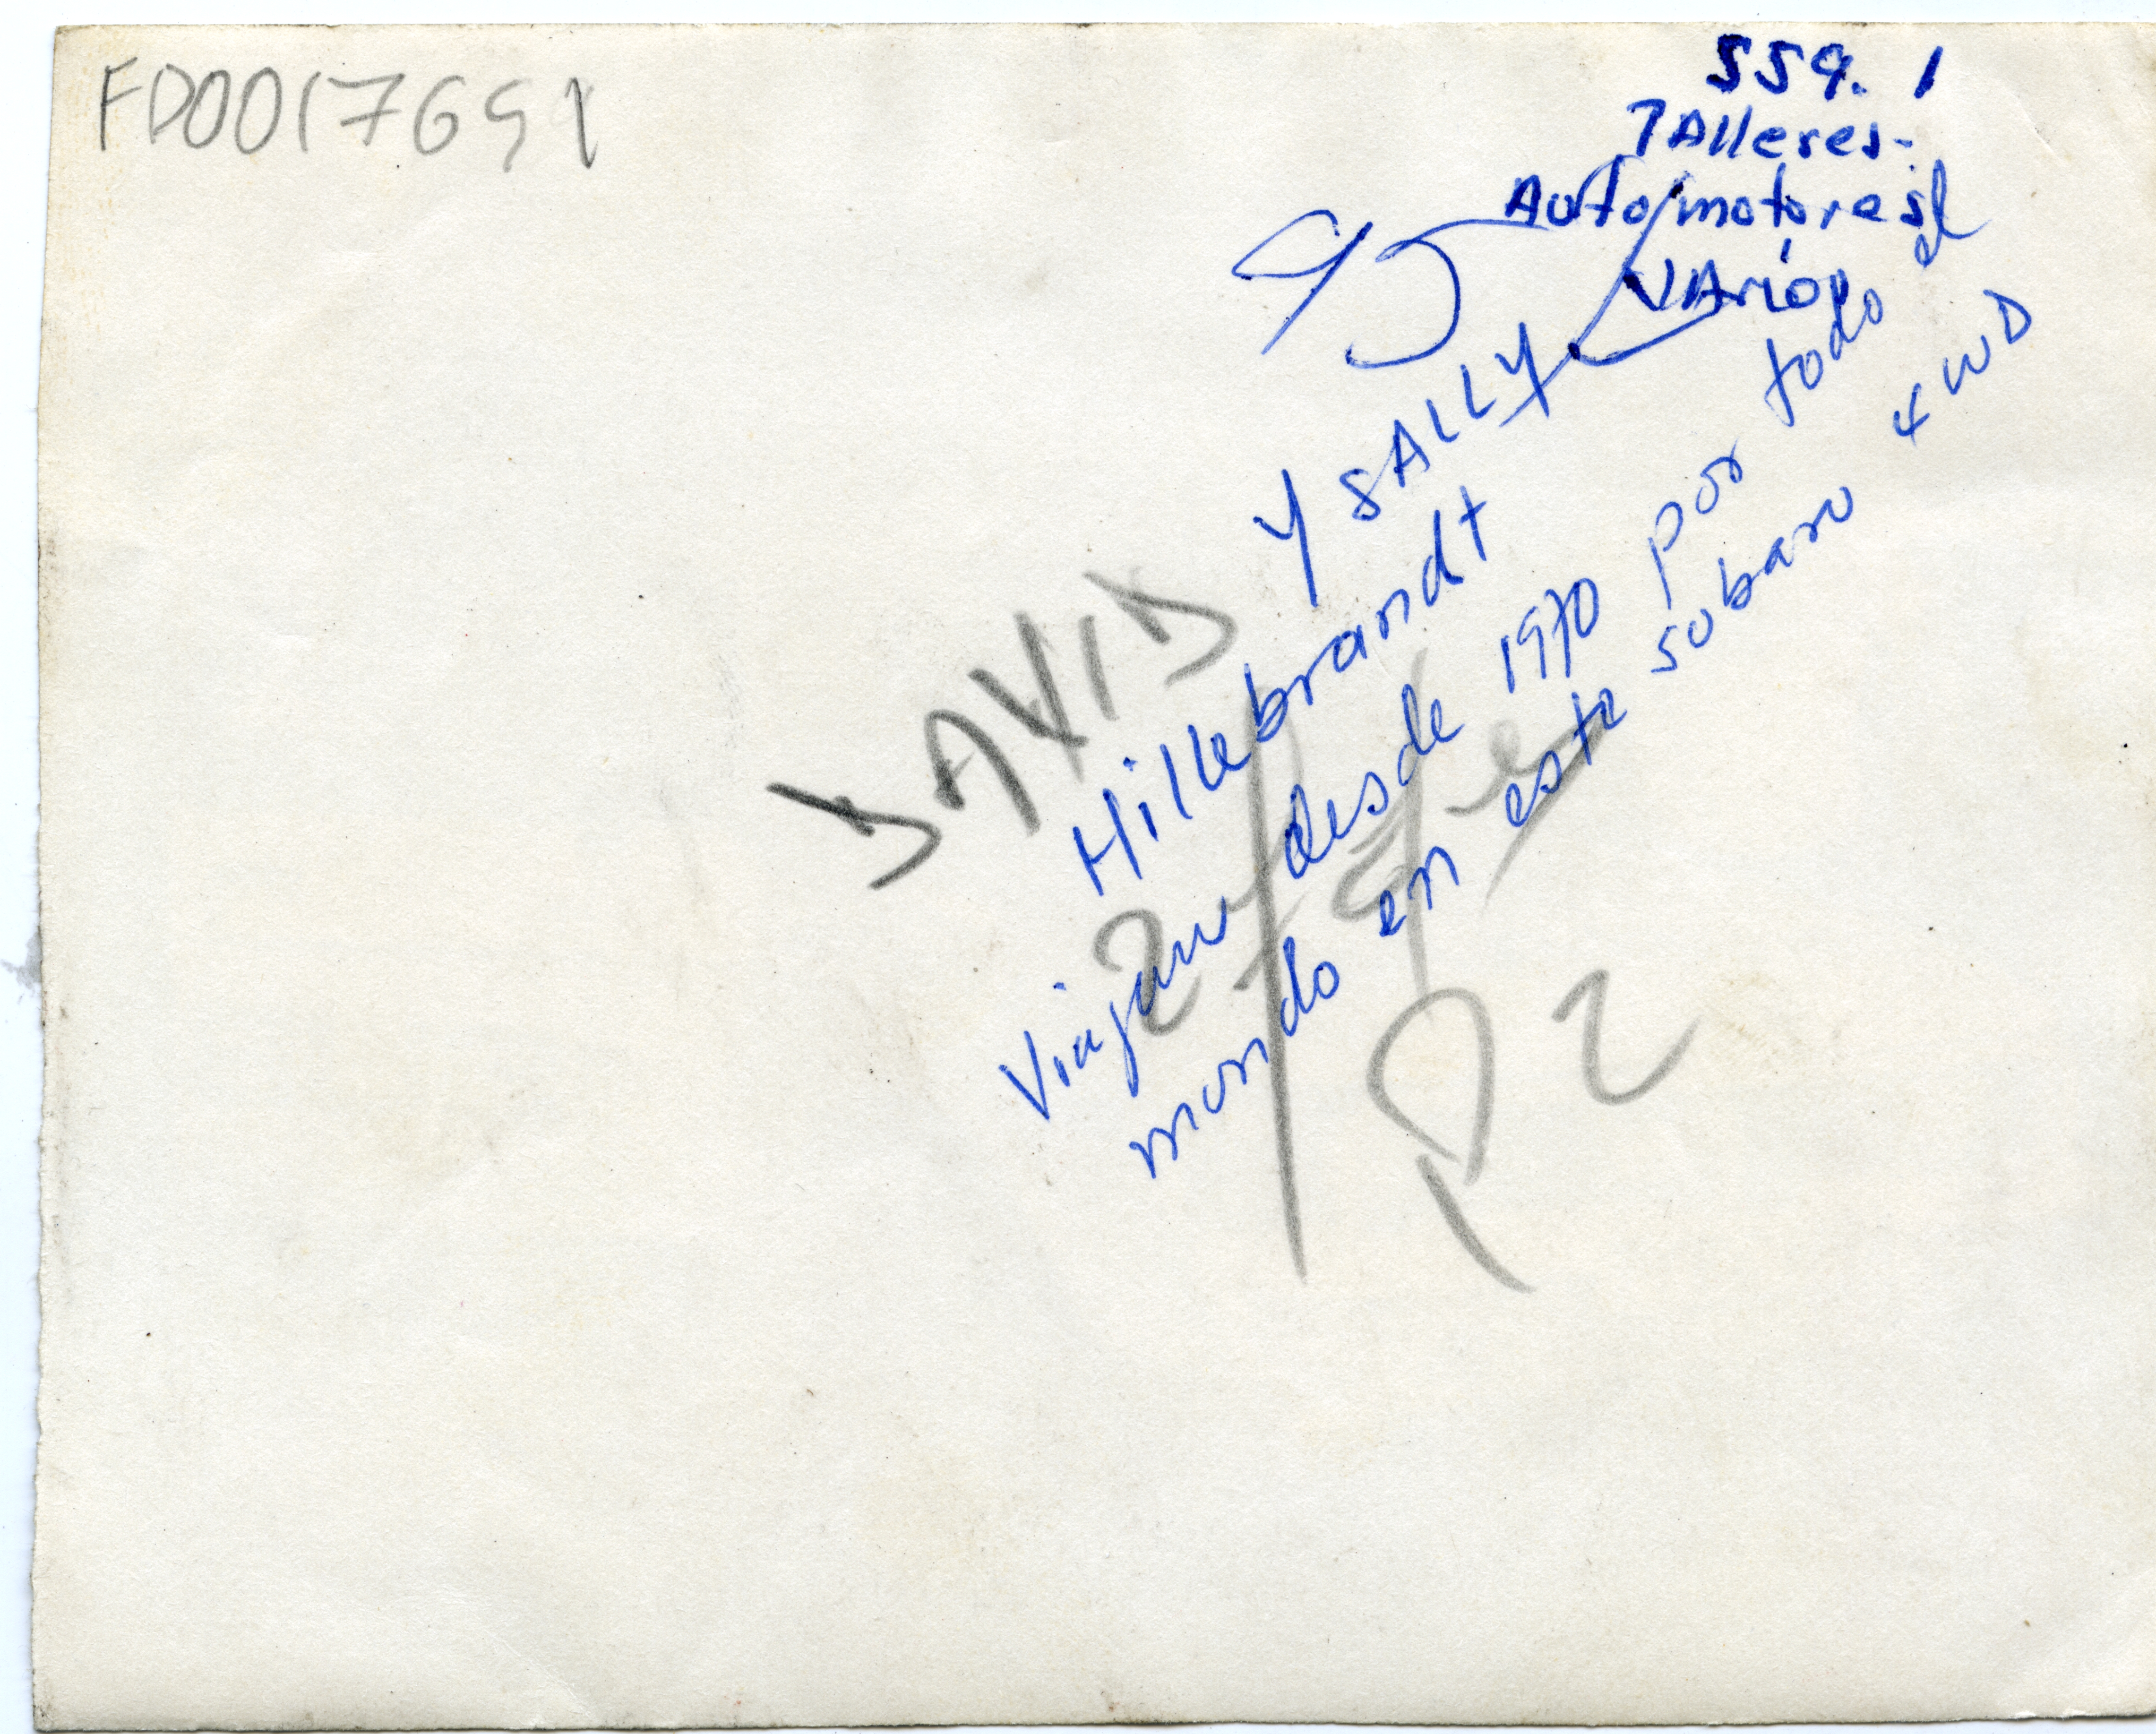 FD0017691
559. 1
TAlleres-
Automotores
VArios
DAVID Y SALLY
Hillebrandt
Viajan desde 1970 por todo el
mundo en este subaru 4WD